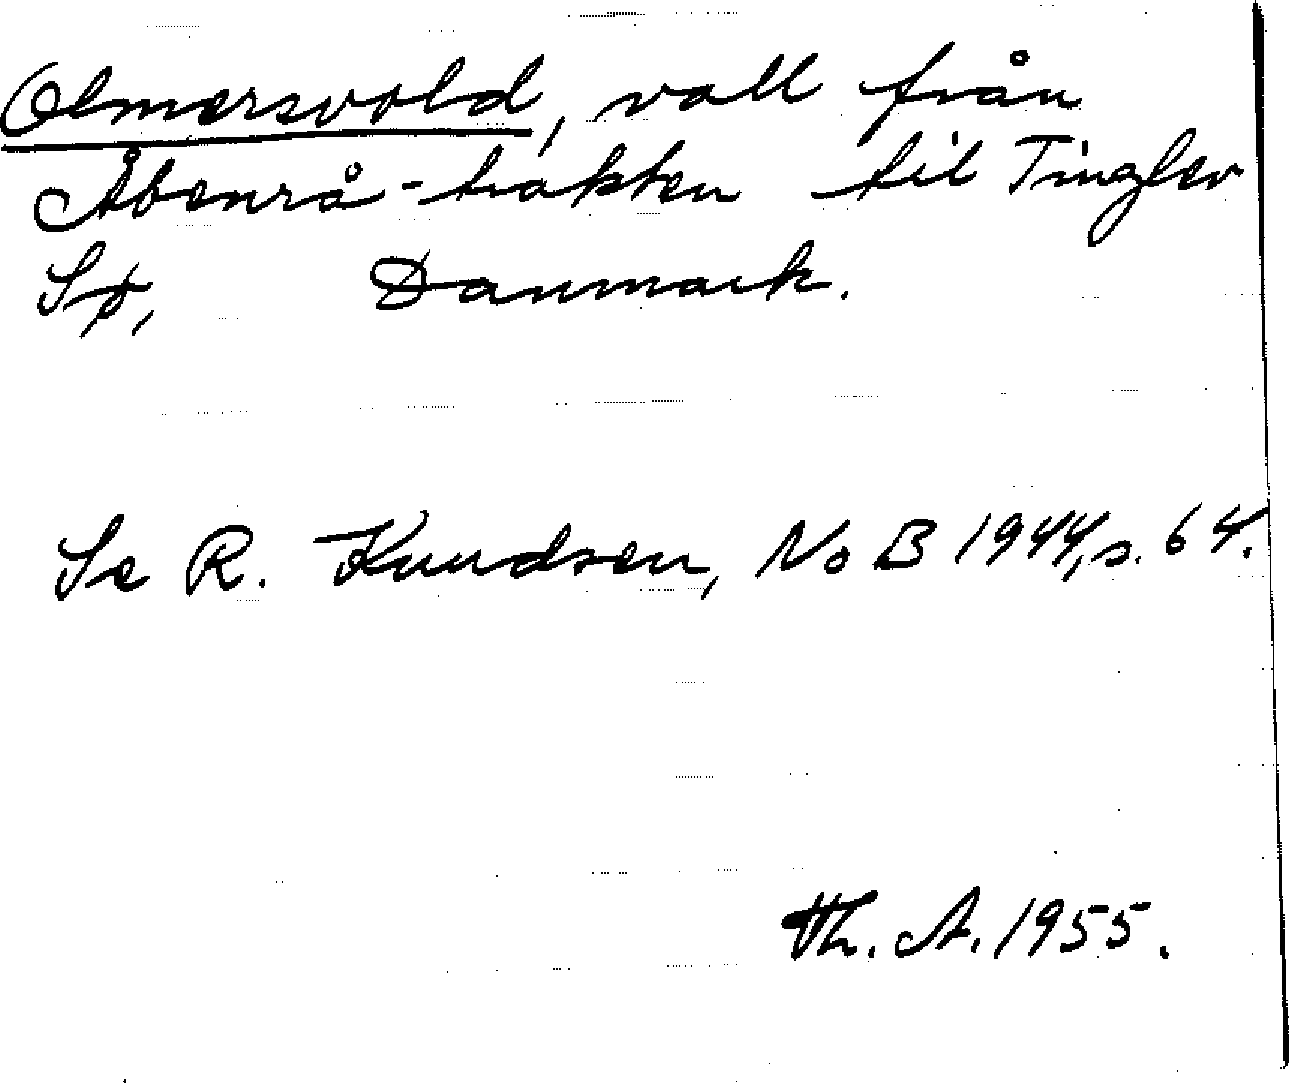 Olmersvold, vall från
Åbenrå-trakten til Tinglev
Sø, Danmark.
Se R. Knudsen, NoB 1944, s. 64.
Th. A. 1955.